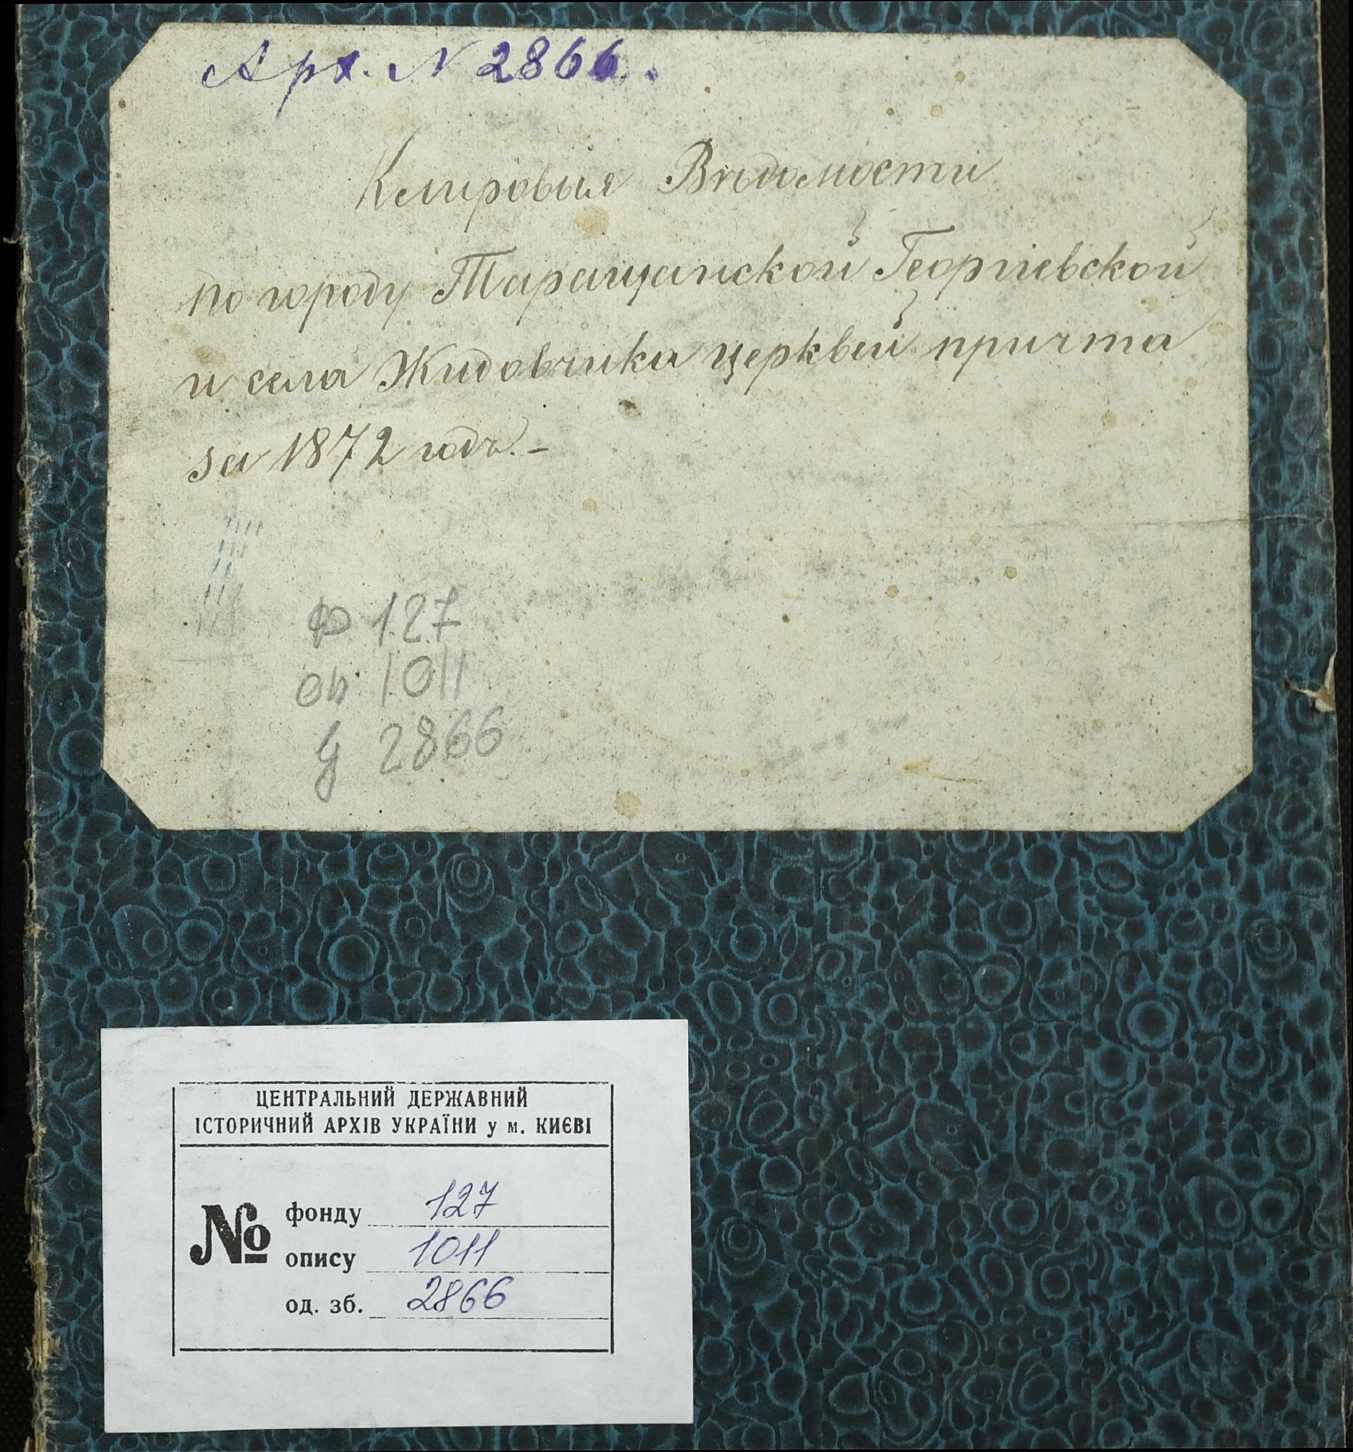 Арх. N 2866.
Клировыя Вѣдомости
по городу Таращанской Георгіевской
и села Жидовчика церквей причта
за 1872 годъ. –
Ф 127
оп 1011
д 2866
ЦЕНТРАЛЬНИЙ ДЕРЖАВНИЙ
ІСТОРИЧНИЙ АРХІВ УКРАЇНИ у м. КИЄВІ
№
фонду 127
опису 1011
од. зб. 2866